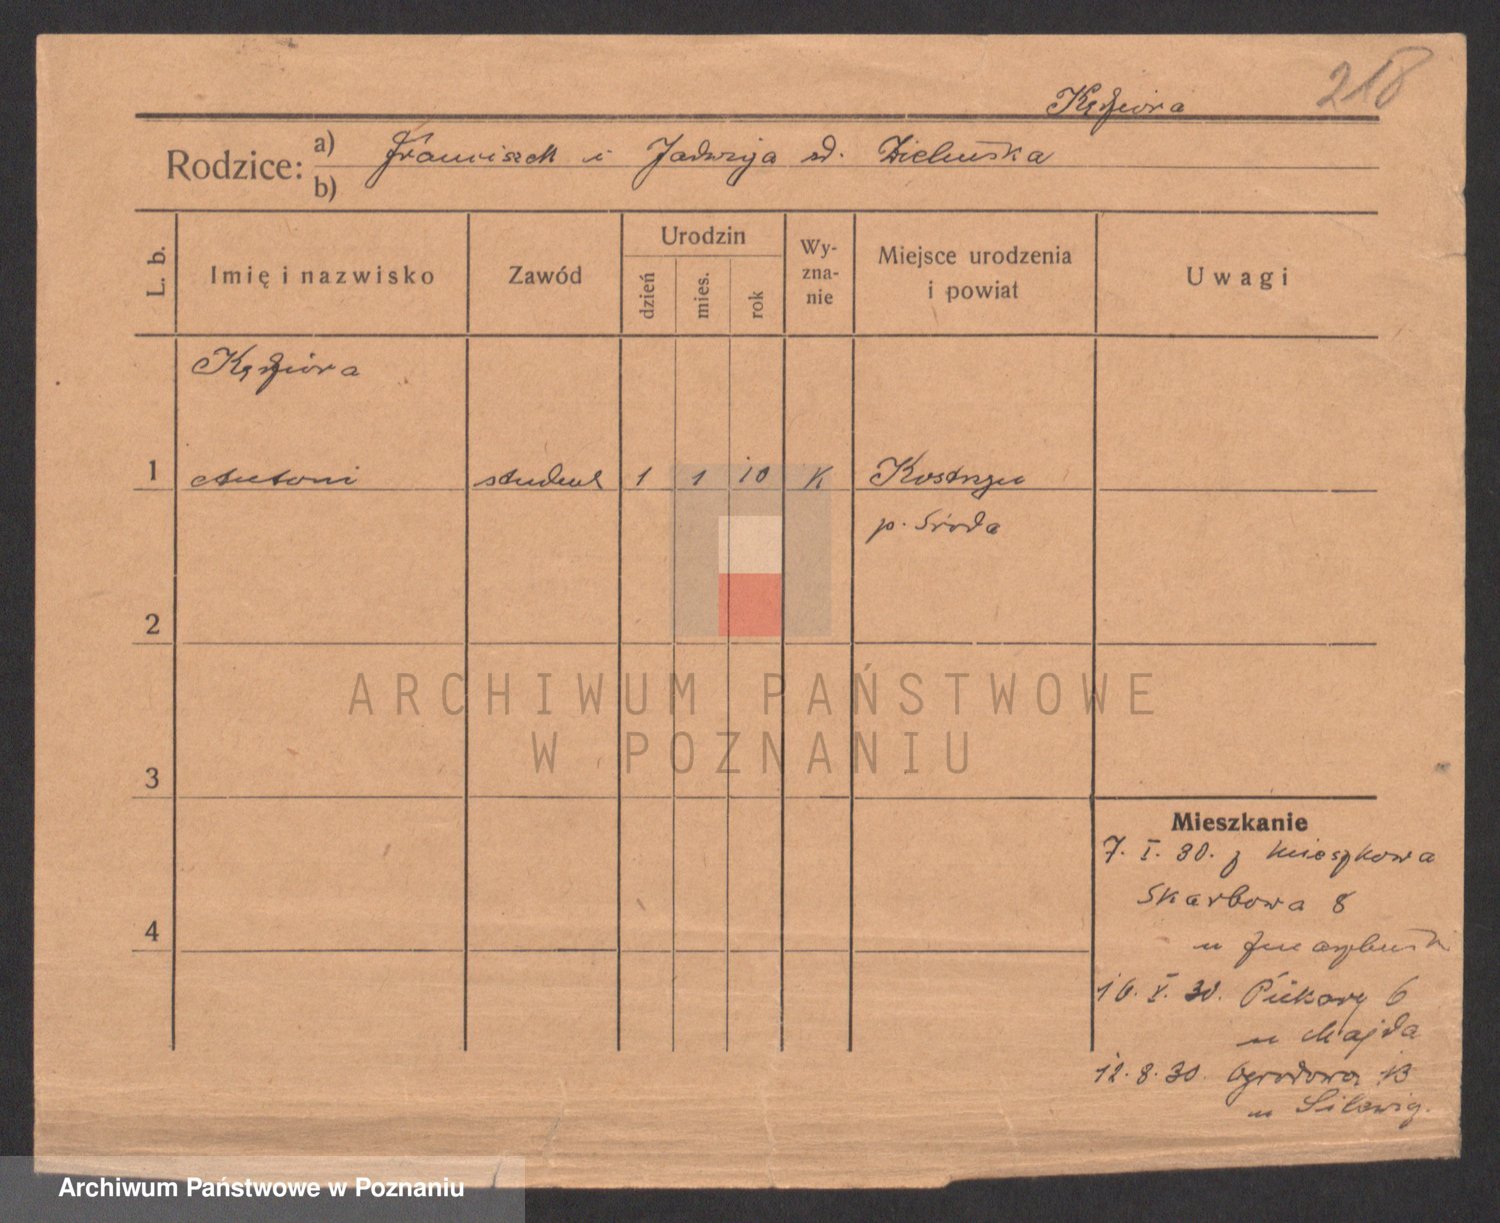 218
Kędziora
Rodzice: a) Franciszek i Jadwiga zd. Zielińska
b)
L. b.
Imię i nazwisko
Zawód
Urodzin
dzień
mies.
rok
Wy-
zna-
nie
Miejsce urodzenia
i powiat
Uwagi
Kędziora
1 Antoni student 1 1 10 K Kostrzyn
p. Środa
2
3
4
Mieszkanie
7. I. 30. z Mieszkowa
Skarbowa 8
u
16. V. 30. Piekary 6
u Majda
12. 8. 30. Ogrodowa 13
u
ARCHIWUM PAŃSTWOWE
W POZNANIU
Archiwum Państwowe w Poznaniu